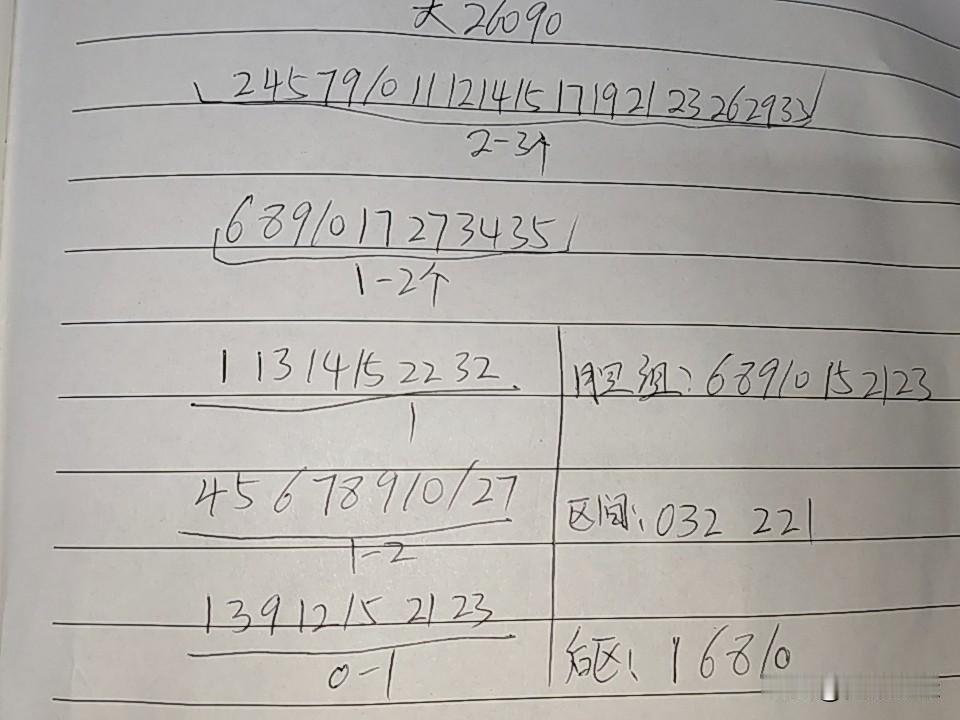 大26090
2 4 5 7 9 10 11 12 14 15 17 19 21 23 26 29 33
2-3个
6 8 9 10 17 27 34 35
1-2个
1 13 14 15 22 32
1
胆组: 6 8 9 10 15 21 23
4 5 6 7 8 9 10 / 27
1-2
区间: 032 221
1 3 9 12 15 21 23
0-1
后区: 1 6 8 10